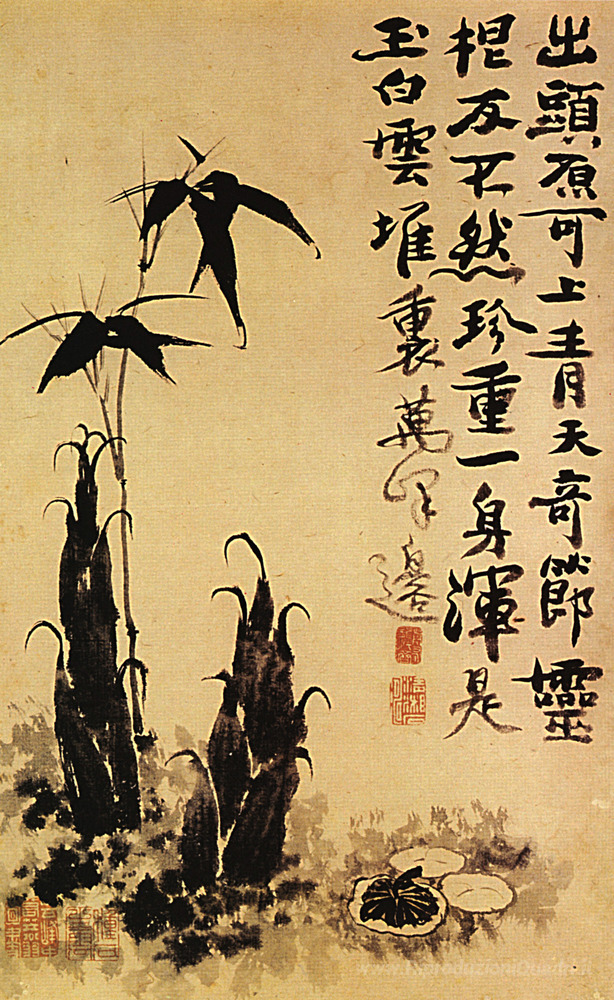 出頭原可上青天奇節靈
根反不然珍重一身渾是
玉白雲堆裏萬峯邊
www.RiproduzioniQuadri.it